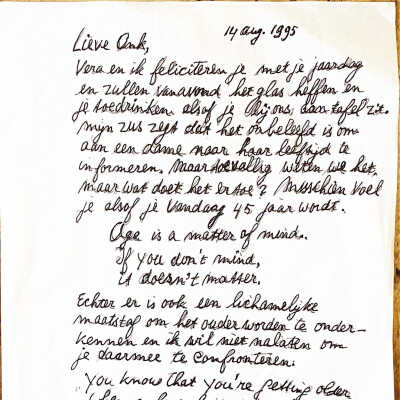 14 aug. 1995
Lieve Omk,
Vera en ik feliciteren je met je jaardag
en zullen vanavond het glas heffen en
je toedrinken alsof je bij ons aan tafel zit.
mijn zus zegt dat het onbeleefd is om
aan een dame naar haar leeftijd te
informeren. Maar toevallig weten we het.
maar wat doet het er toe? Misschien voel
je alsof je vandaag 45 jaar wordt.
Age is a matter of mind.
If you don't mind,
it doesn't matter.
Echter er is ook een lichamelijke
maatstaf om het ouder worden te onder-
kennen en ik wil niet nalaten om
je daarmee te confronteren.
"You know that you're getting older